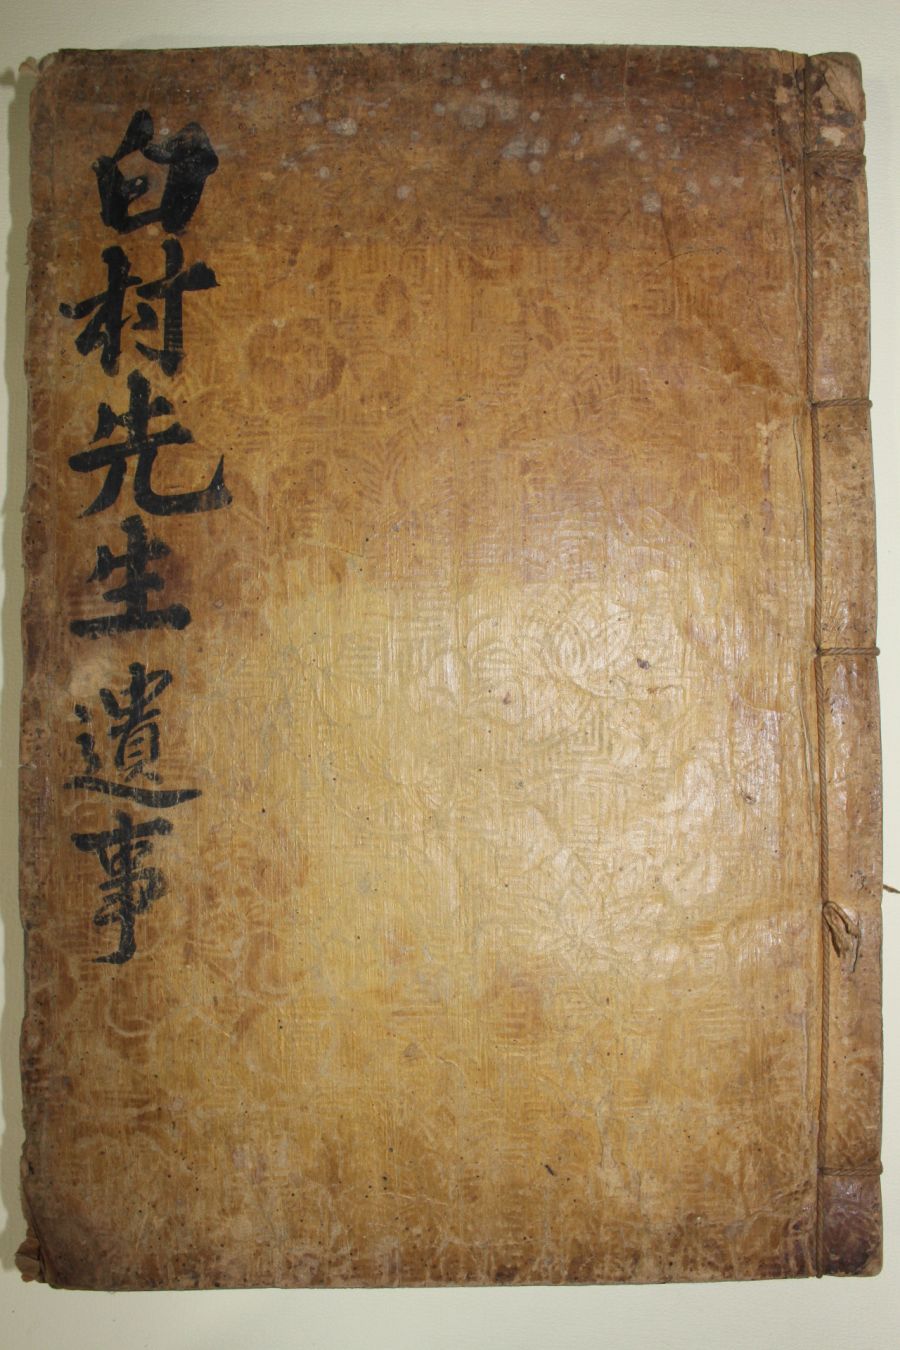 白村先生遺事